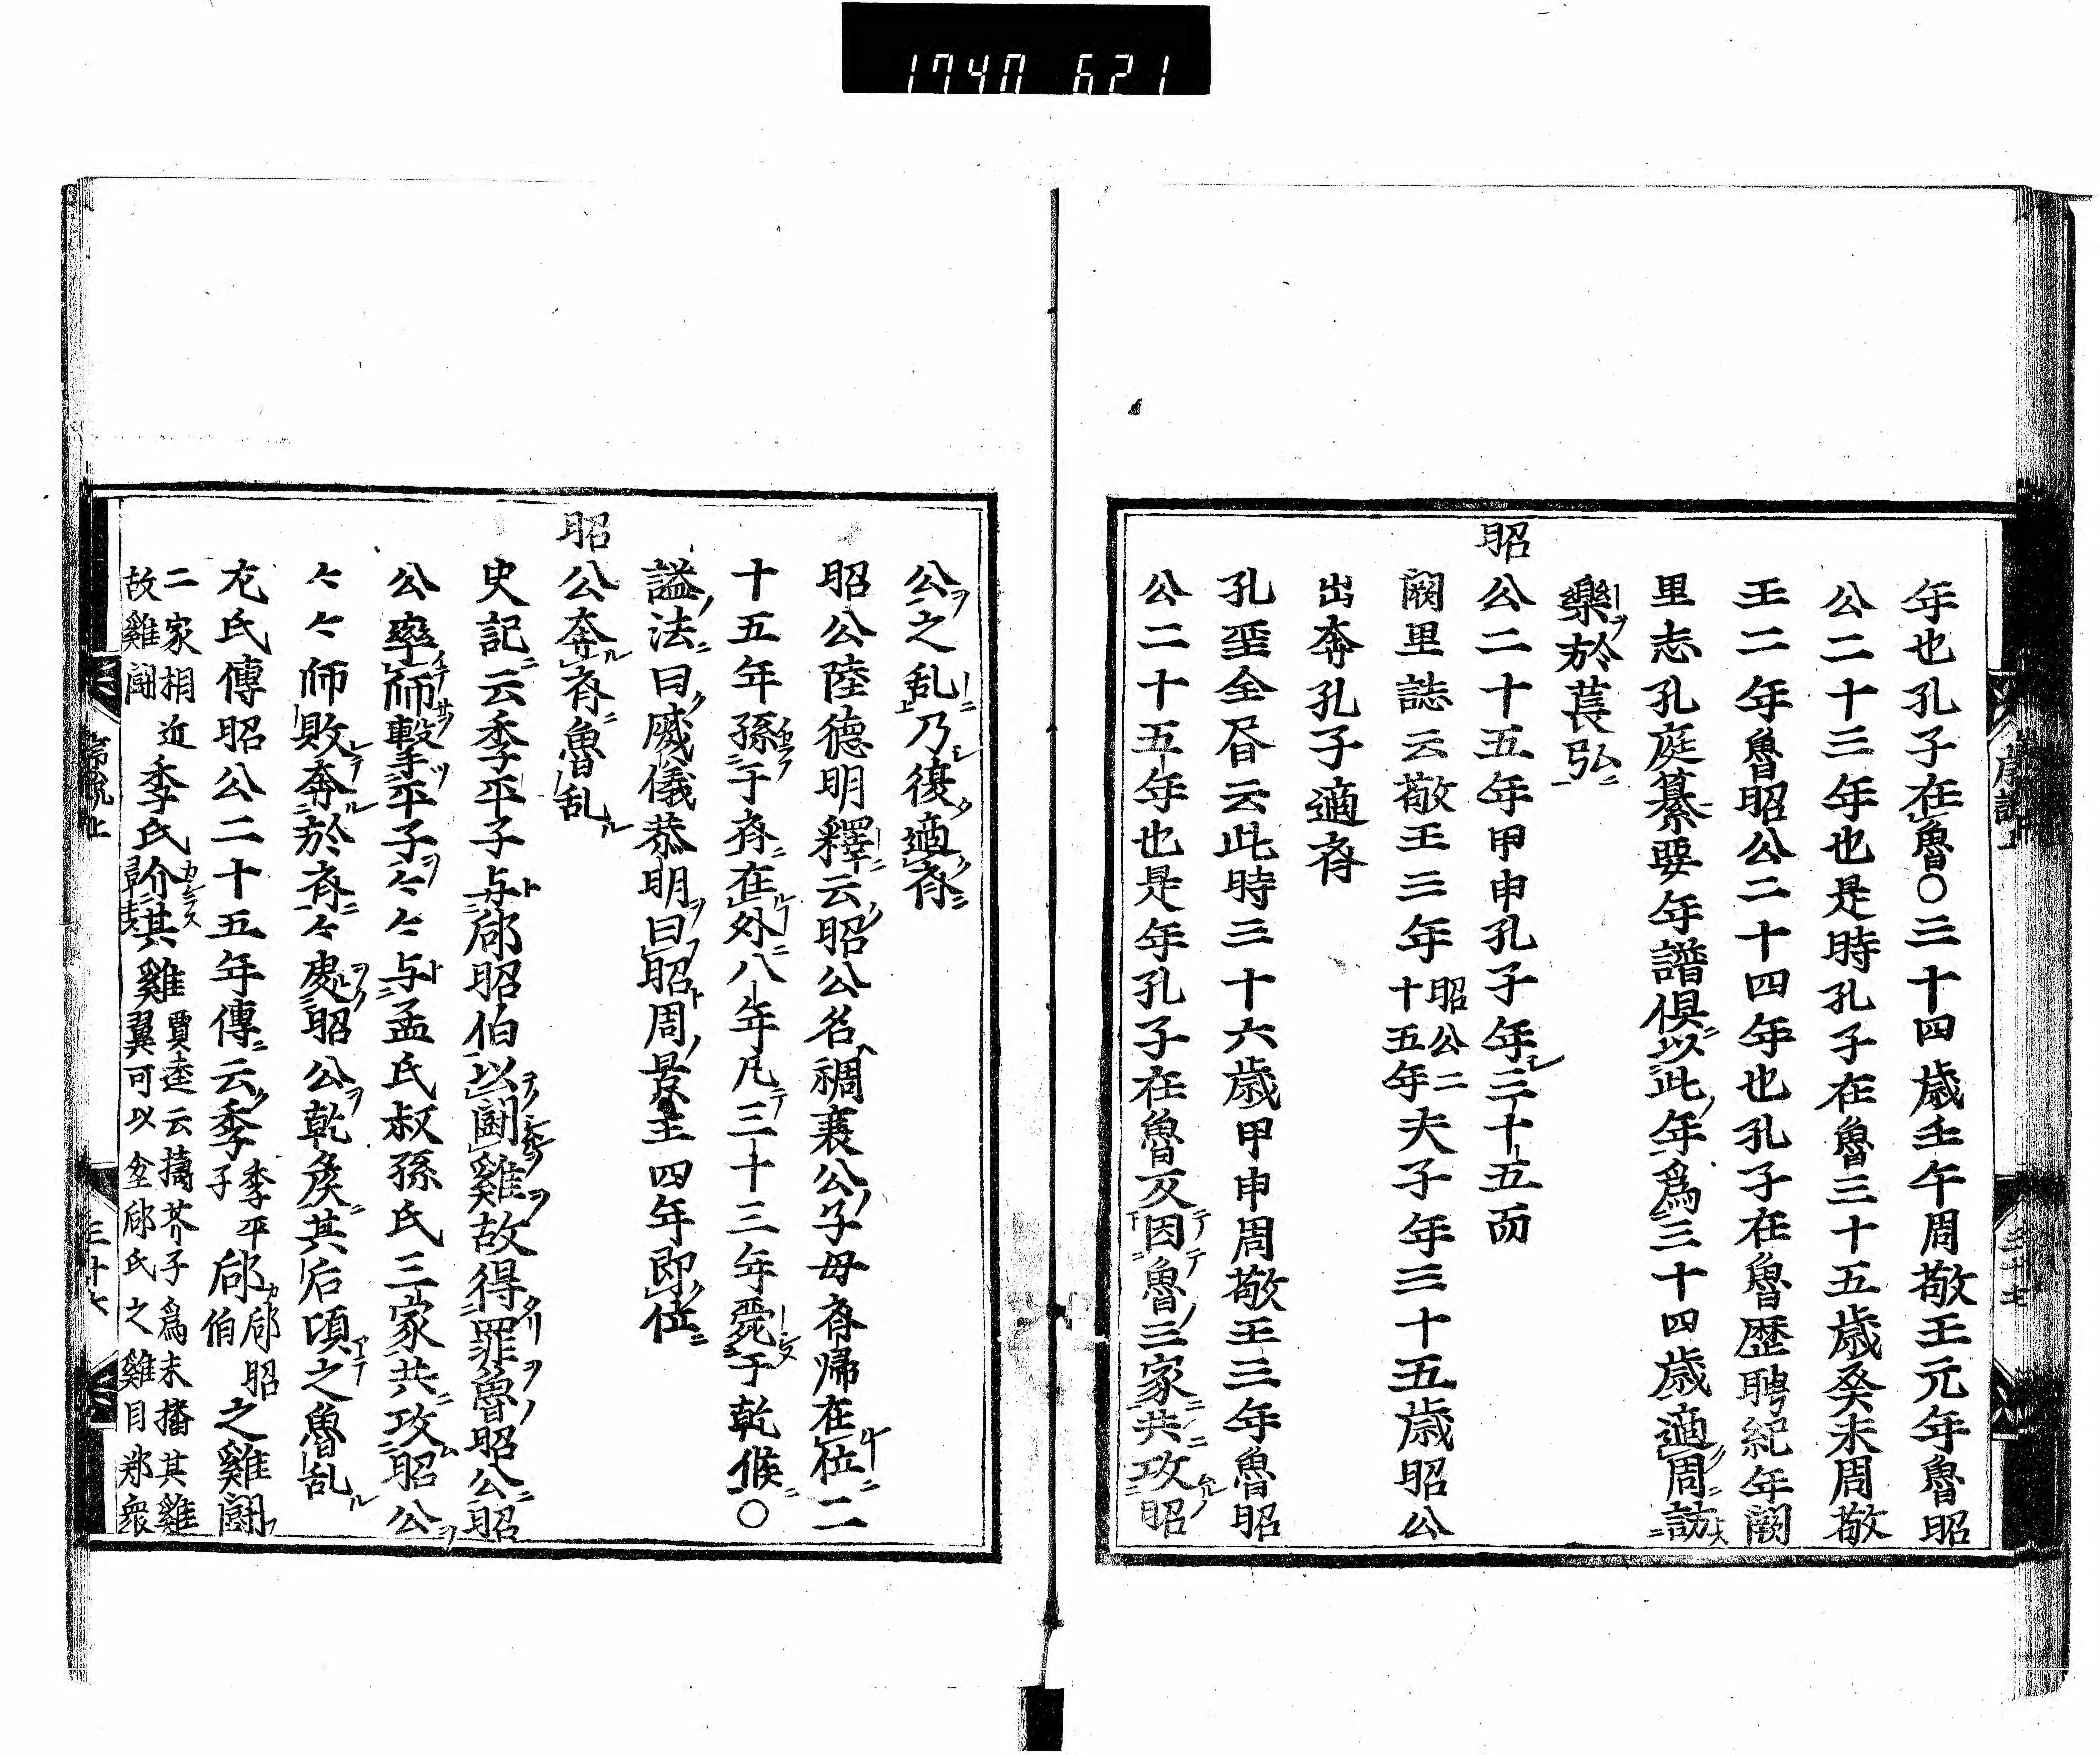 1740 621
年也孔子在魯○三十四歲壬午周敬王元年魯昭
公二十三年也是時孔子在魯三十五歲癸未周敬
王二年魯昭公二十四年也孔子在魯歷聘紀年闕
里志孔庭纂要年譜俱以此年爲三十四歲適周訪
樂於萇弘
昭公二十五年甲申孔子年三十五而
闕里誌云敬王三年昭公二十五年夫子年三十五歲昭公
出奔孔子適齊
孔聖全眉云此時三十六歲甲申周敬王三年魯昭
公二十五年也是年孔子在魯又因魯三家共攻昭
公之乱乃復適斉
昭公陸德明釋云昭公名裯襄公子母斉帰在位二
十五年孫于斉在外八年凡三十三年薨于乾候○
謚法曰威儀恭明曰昭周景王四年即位
昭公奔斉魯乱
史記云季平子与郈昭伯以闘雞故得罪魯昭公昭
公率師擊平子々々与孟氏叔孫氏三家共攻昭公
々々師敗奔於斉々處昭公乾矦其后頃之魯乱
左氏傳昭公二十五年傳云季季平子郈郈昭伯之雞闘
二家相近故雞闘季氏介其雞賈逵云擣芥子爲末播其雞翼可以坌郈氏之雞目鄭衆
三十六